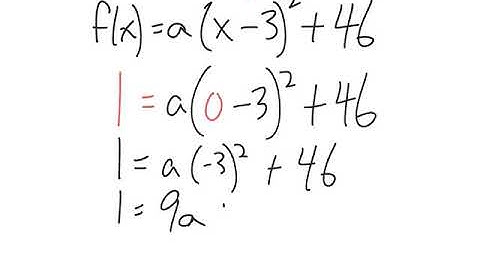 f(x)=a(x-3)²+46
1=a(0-3)²+46
1=a(-3)²+46
1=9a